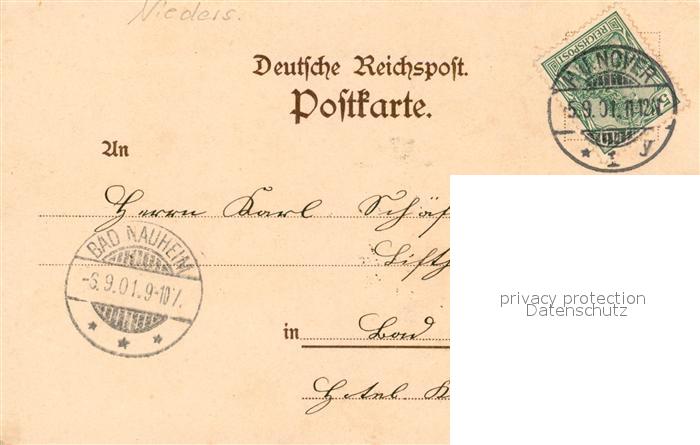 Nieders.
Deutsche Reichspost.
Postkarte.
REICHSPOST
HANNOVER
5.9.01.11-12V
* 1 y
An
Herrn Karl Schäf
BAD NAUHEIM
-6.9.01.9-10V.
privacy protection
Datenschutz
in Bad
Hotel K